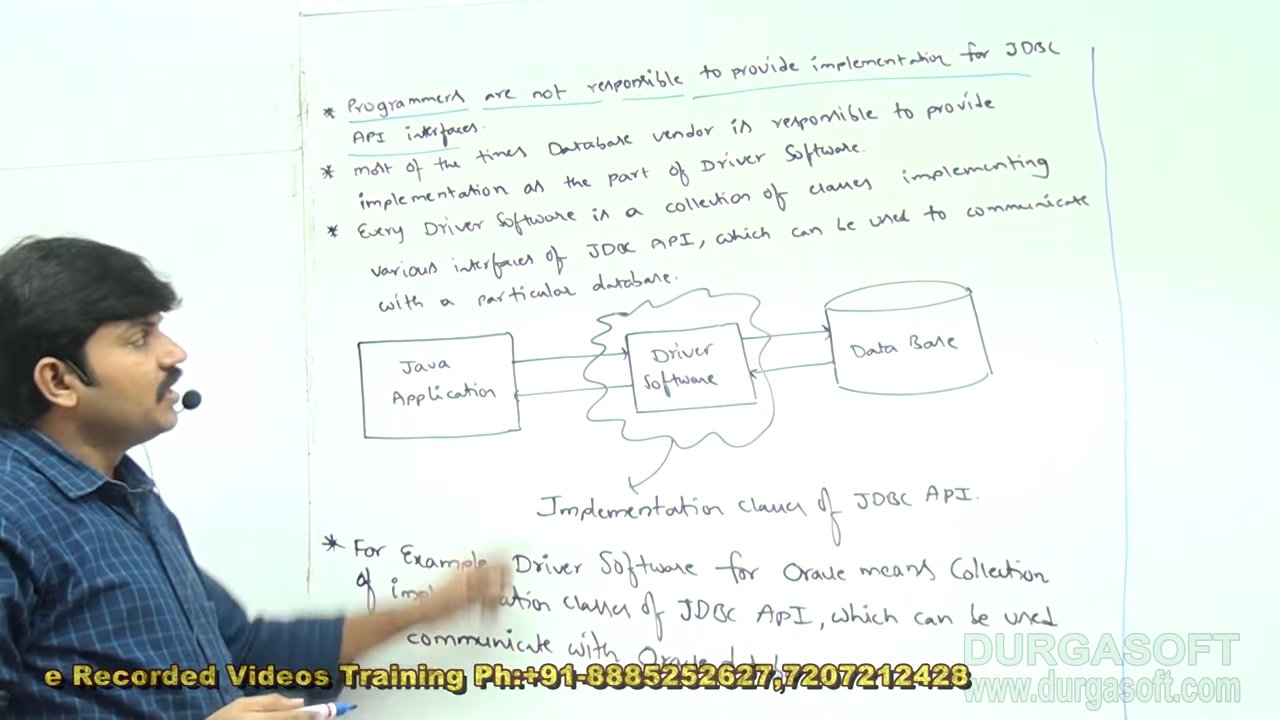 * Programmers are not responsible to provide implementation for JDBC
API interfaces.
* most of the times Database vendor is responsible to provide
implementation as the part of Driver Software.
* Every Driver Software is a collection of classes implementing
various interfaces of JDBC API, which can be used to communicate
with a particular database.
Java
Application
Driver
Software
Data Base
Implementation classes of JDBC API.
* For Example Driver Software for Oracle means Collection
of classes of JDBC API, which can be used
communicate with Oracle
e Recorded Videos Training Ph:+91-8885252627,7207212428
DURGASOFT
www.durgasoft.com